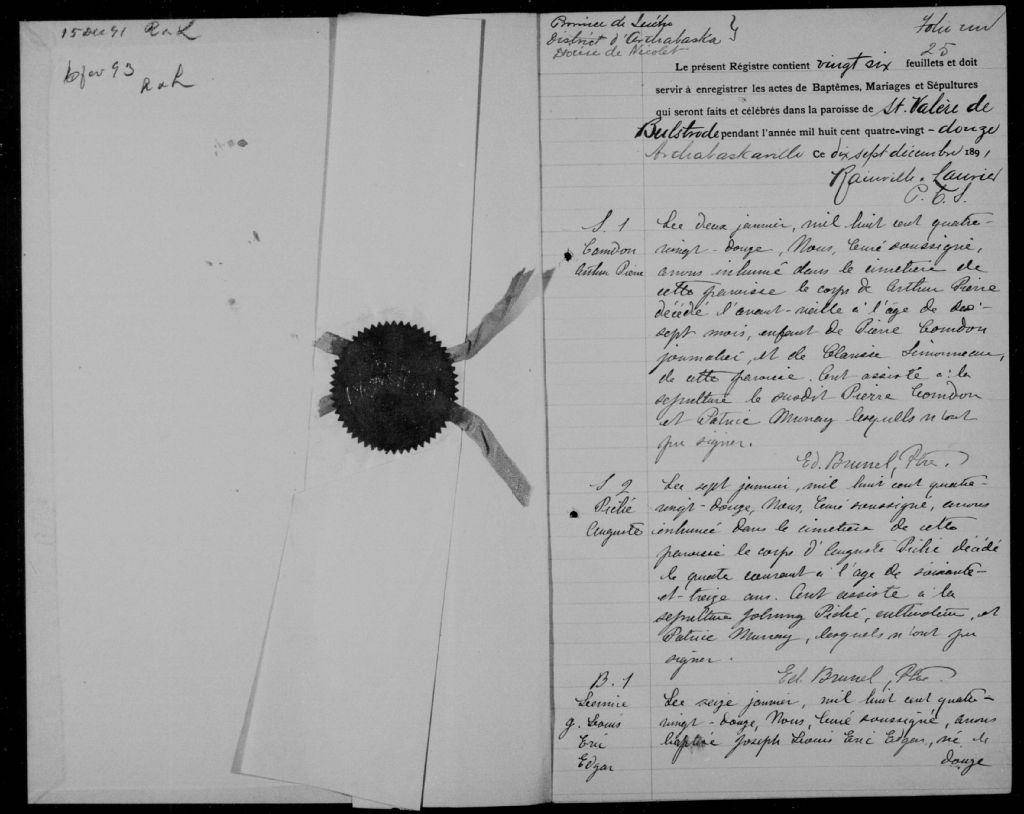 15 Dec 91 R & L
6 fev 93
R & L
Province de Québec
District d'Arthabaska
Diocèse de Nicolet
Folio un
25
Le présent Régistre contient vingt six feuillets et doit
servir à enregistrer les actes de Baptêmes, Mariages et Sépultures
qui seront faits et célébrés dans la paroisse de St. Valère de
Bulstrode pendant l'année mil huit cent quatre-vingt-douze
Arthabaskaville Ce dix sept décembre 1891
Rainville & Laurier
P. C. S.
S. 1
Comdon
Arthur Pierre
Le deux janvier, mil huit cent quatre-
vingt-douze, Nous, Curé soussigné,
avons inhumé dans le cimetière de
cette paroisse le corps de Arthur Pierre
décédé l'avant-veille à l'âge de dix-
sept mois, enfant de Pierre Comdon
journalier, et de Clarisse Simonneau,
de cette paroisse. Ont assisté à la
sépulture le susdit Pierre Comdon
et Patrice Murray lesquells n'ont
pu signer.
Ed. Brunel, Ptre.
S 2
Piché
Auguste
Le sept janvier, mil huit cent quatre-
vingt-douze, Nous, Curé soussigné, avons
inhumé dans le cimetière de cette
paroisse le corps d'Auguste Piché décédé
le quatre courant à l'âge de soixante-
et-treize ans. Ont assisté à la
sépulture Johnny Piché, cultivateur, et
Patrice Murray, lesquels n'ont pu
signer.
Ed. Brunel, Ptre.
B. 1
Lemire
J. Louis
Eric
Edgar
Le seize janvier, mil huit cent quatre-
vingt-douze, Nous, Curé soussigné, avons
baptisé Joseph Louis Eric Edgar, né le
douze